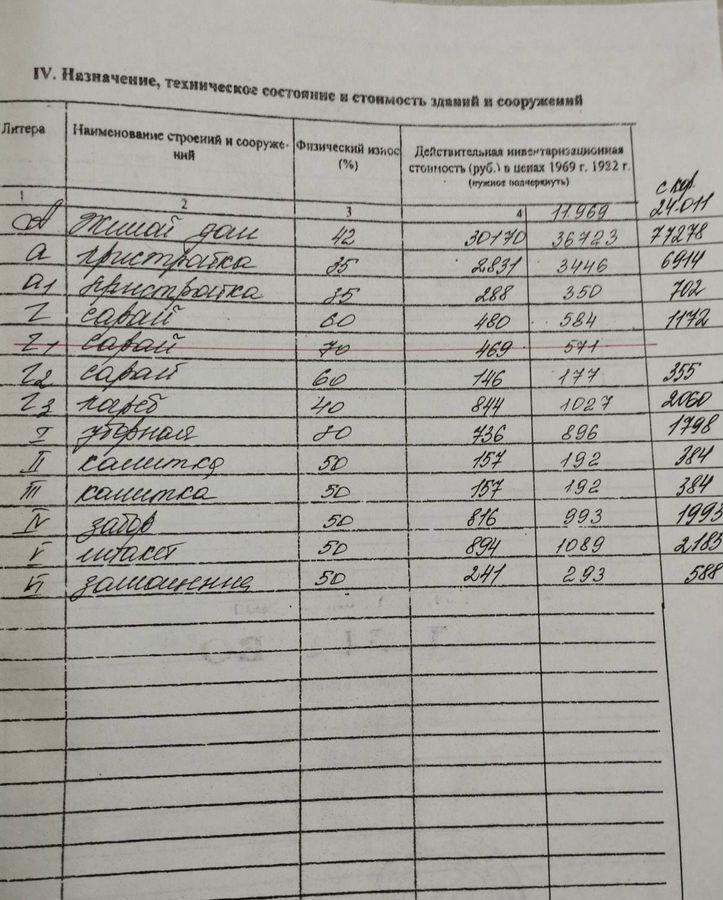 IV. Назначение, техническое состояние и стоимость зданий и сооружений
Литера Наименование строений и сооружений Физический износ (%) Действительная инвентаризационная стоимость (руб.) в ценах 1969 г. 1982 г. (нужное подчеркнуть) с кор.
1 2 3 4 11.969 24.011
А Жилой дом 42 30170 36723 77278
а пристройка 35 2831 3446 6914
а1 пристройка 35 288 350 702
Г сарай 60 480 584 1172
Г1 сарай 70 469 571
Г2 сарай 60 146 177 355
Г3 погреб 40 844 1027 2060
I уборная 80 736 896 1798
II калитка 50 157 192 384
III калитка 50 157 192 384
IV забор 50 816 993 1993
V 50 894 1089 2183
VI замощение 50 241 293 588